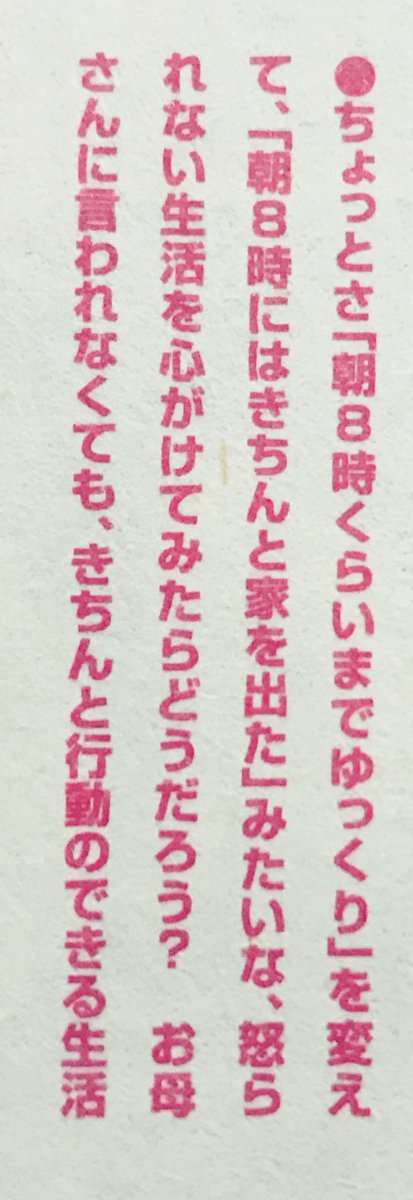 ●ちょっとさ「朝8時くらいまでゆっくり」を変え
て、「朝8時にはきちんと家を出た」みたいな、怒ら
れない生活を心がけてみたらどうだろう？　お母
さんに言われなくても、きちんと行動のできる生活